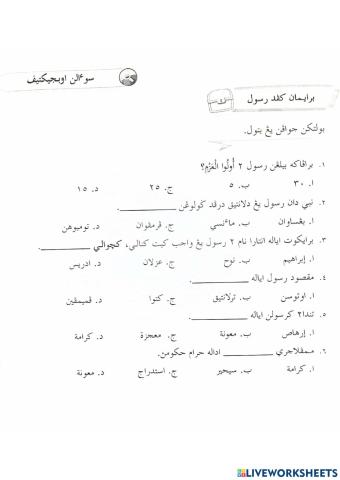 سوءالن اوبجيكتيف
برايمان كڤد رسول
بولتكن جواڤن يڠ بتول.
١. براڤاكه بيلڠن رسول ٢ أُولُوا الْعَزْمِ؟
ا. ٣٠ ب. ٥ ج. ٢٥ د. ١٥
٢. نبي دان رسول يڠ دلانتيق درڤد كولوڠن ________.
ا. بڠساوان ب. ماءنسي ج. ڤرمڤوان د. تومبوهن
٣. برايكوت اياله انتارا نام ٢ رسول يڠ واجب كيت كتاهوءي، كچوالي ________.
ا. إبراهيم ب. نوح ج. عزلان د. ادريس
٤. مقصود رسول اياله ________
ا. اوتوسن ب. ترلانتيق ج. كتوا د. ڤميمڤين
٥. تندا٢ كرسولن اياله ________.
ا. إرهاص ب. معونة ج. معجزة د. كرامة
٦. ممڤلاجري ________ اداله حرام حكومن.
ا. كرامة ب. سيحير ج. استدراج د. معونة
LIVEWORKSHEETS